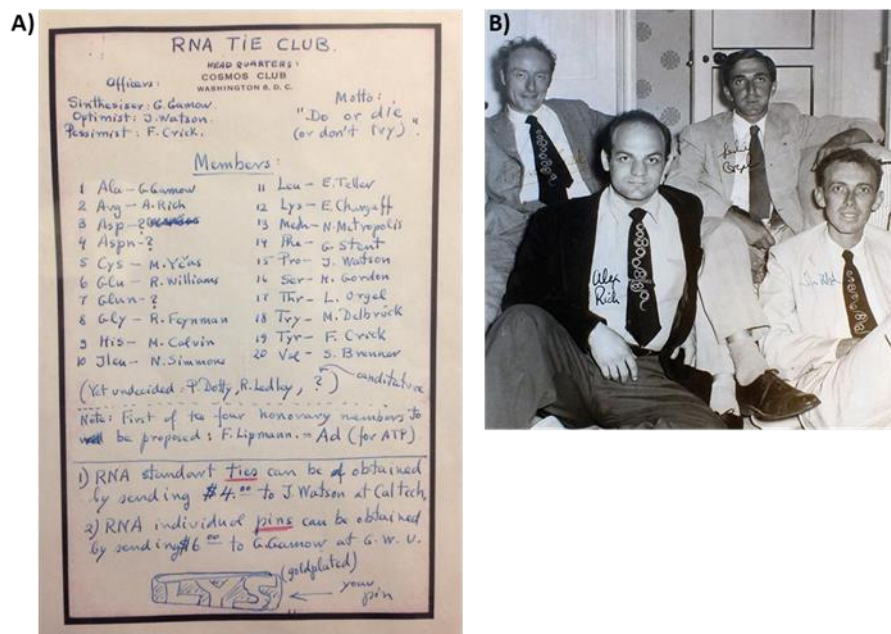 A)
RNA TIE CLUB.
HEAD QUARTERS:
COSMOS CLUB
WASHINGTON 5, D. C.
Officers:
Sinthesiser: G. Gamow.
Optimist: J. Watson.
Pessimist: F. Crick.
Motto:
"Do or die
(or don't try)."
Members:
1 Ala – G. Gamow
2 Arg – A. Rich
3 Asp – ?
4 Aspn – ?
5 Cys – M. Yčas
6 Glu – R. Williams
7 Glun – ?
8 Gly – R. Feynman
9 His – M. Calvin
10 Ileu – N. Simmons
11 Leu – E. Teller
12 Lys – E. Chargaff
13 Meth – N. Metropolis
14 Phe – G. Stent
15 Pro – J. Watson
16 Ser – H. Gordon
17 Thr – L. Orgel
18 Try – M. Delbrück
19 Tyr – F. Crick
20 Val – S. Brenner
(Yet undecided: P. Dotty, R. Ledley, ?)
Note: First of te four honorary members to
be proposed: F. Lipmann. = Ad (for ATP)
1) RNA standart ties can be obtained
by sending $4.00 to J. Watson at Caltech.
2) RNA individual pins can be obtained
by sending $6.00 to G. Gamow at G. W. U.
(goldplated)
LYS
your
pin
B)
Leslie
Orgel
Alex
Rich